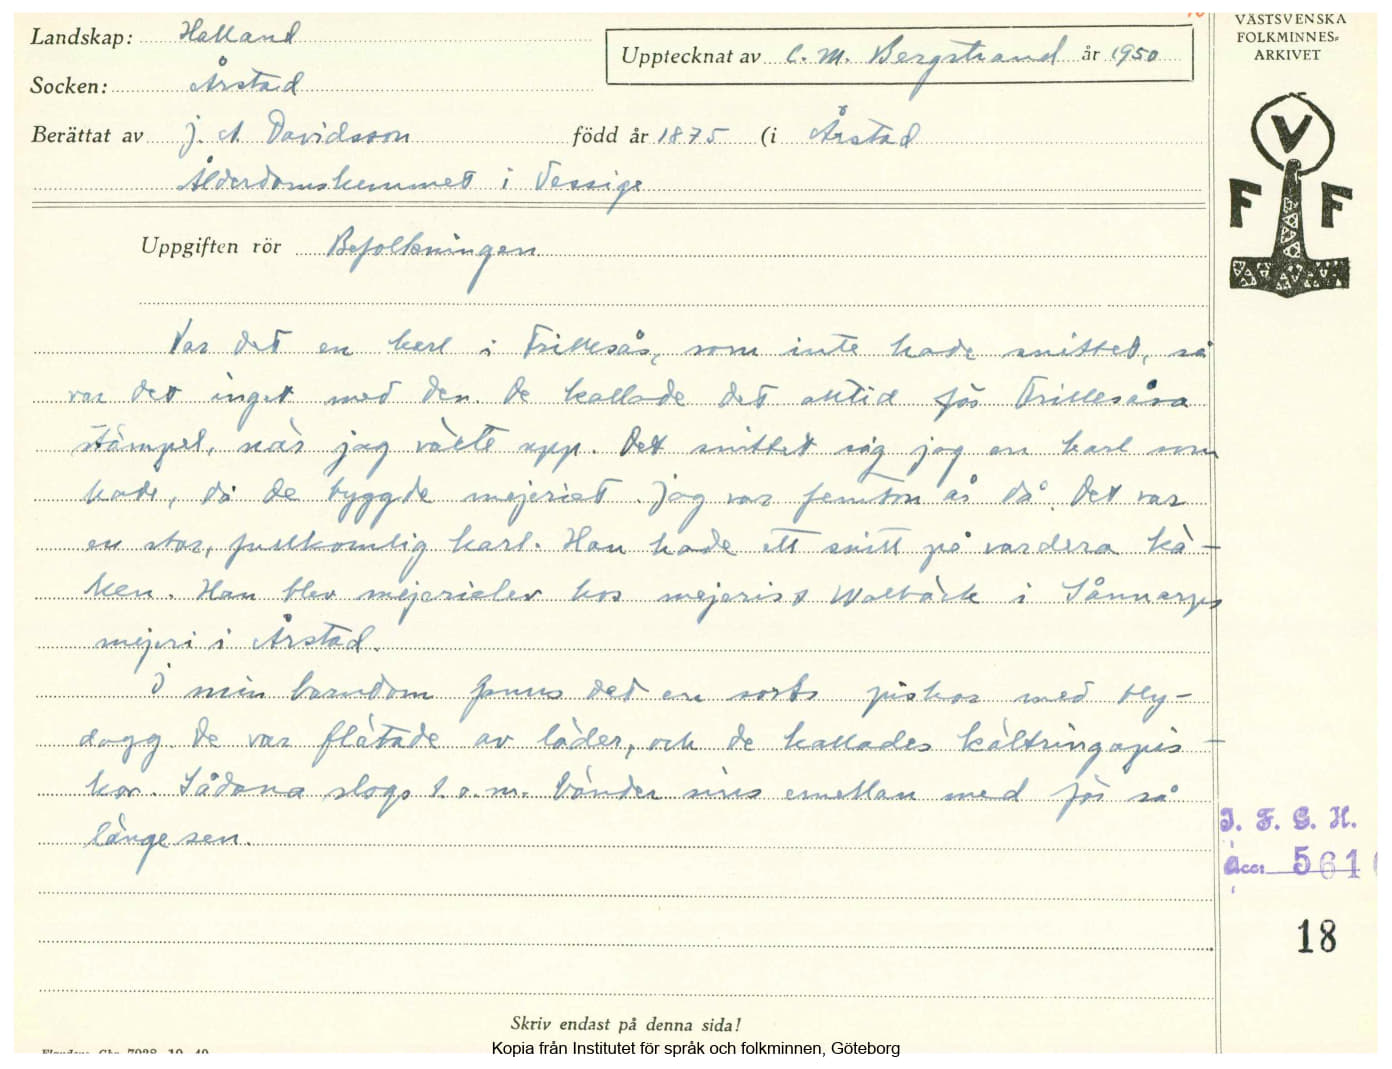 Landskap: Halland
Upptecknat av C. M. Bergstrand år 1950
VÄSTSVENSKA
FOLKMINNES-
ARKIVET
Socken: Årstad
Berättat av J. A. Davidsson född år 1875 (i Årstad
Ålderdomshemmet i Vessige
V
F F
Uppgiften rör Befolkningen
Var det en karl i Frillesås, som inte hade snittet, så
var det inget med den. De kallade det alltid för Frillesåsa
stämpel, när jag växte upp. Det snittet såg jag en karl som
hade, då de byggde mejeriet. Jag var femton år då. Det var
en stor, fullkomlig karl. Han hade ett snitt på vardera kä-
ken. Han blev mejerielev hos mejerist Walbäck i Sännarps
mejeri i Årstad.
I min barndom fanns det en sorts piskor med bly-
dagg. De var flätade av läder, och de kallades kältringapis-
kor. Sådana slogs t.o.m. bönder sins emellan med för så
länge sen.
I. F. G. H.
Acc: 561
18
Skriv endast på denna sida!
Kopia från Institutet för språk och folkminnen, Göteborg